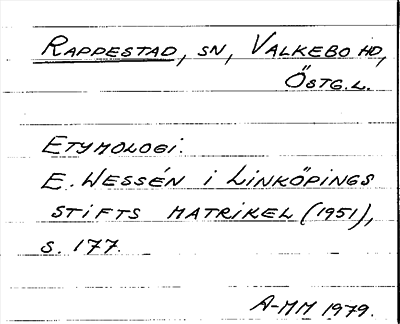 RAPPESTAD, SN, VALKEBO HD,
ÖSTG.L.
ETYMOLOGI.
E. WESSÉN I LINKÖPINGS
STIFTS MATRIKEL (1951),
S. 177.
A-MM 1979.